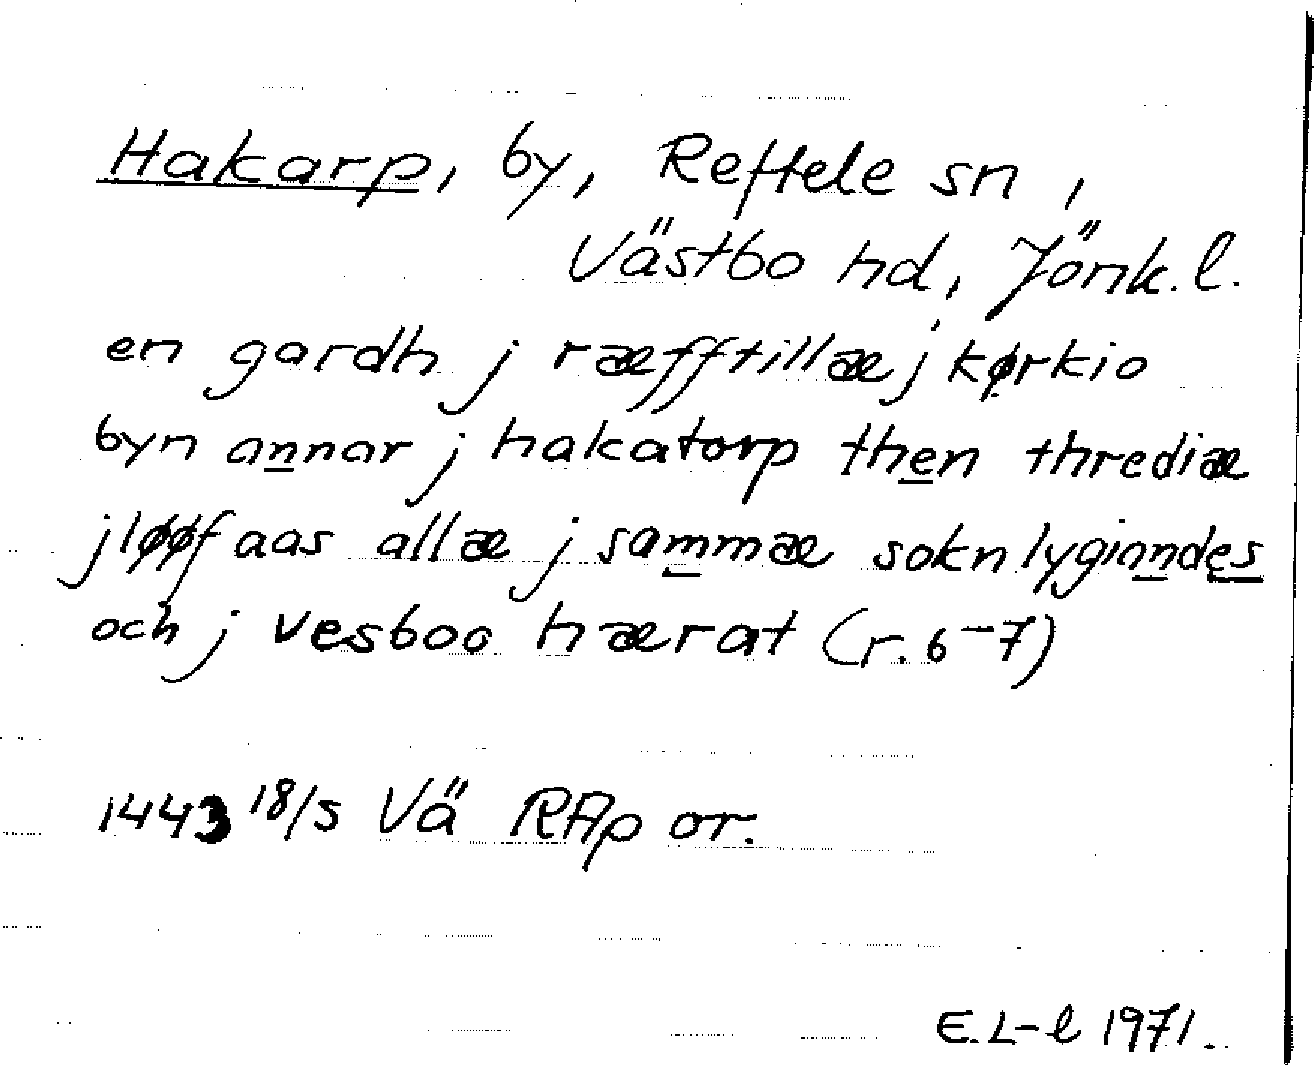 Hakarp, by, Reftele sn,
Västbo hd, Jönk. l.
en gardh j ræfftillæ j kørkio
byn annar j hakatorp then thrediæ
j løøfaas allæ j sammæ sokn lyginndes
och j vesboo hærat (r. 6-7)
1443 18/5 Vä RAp or.
E. L-l 1971.